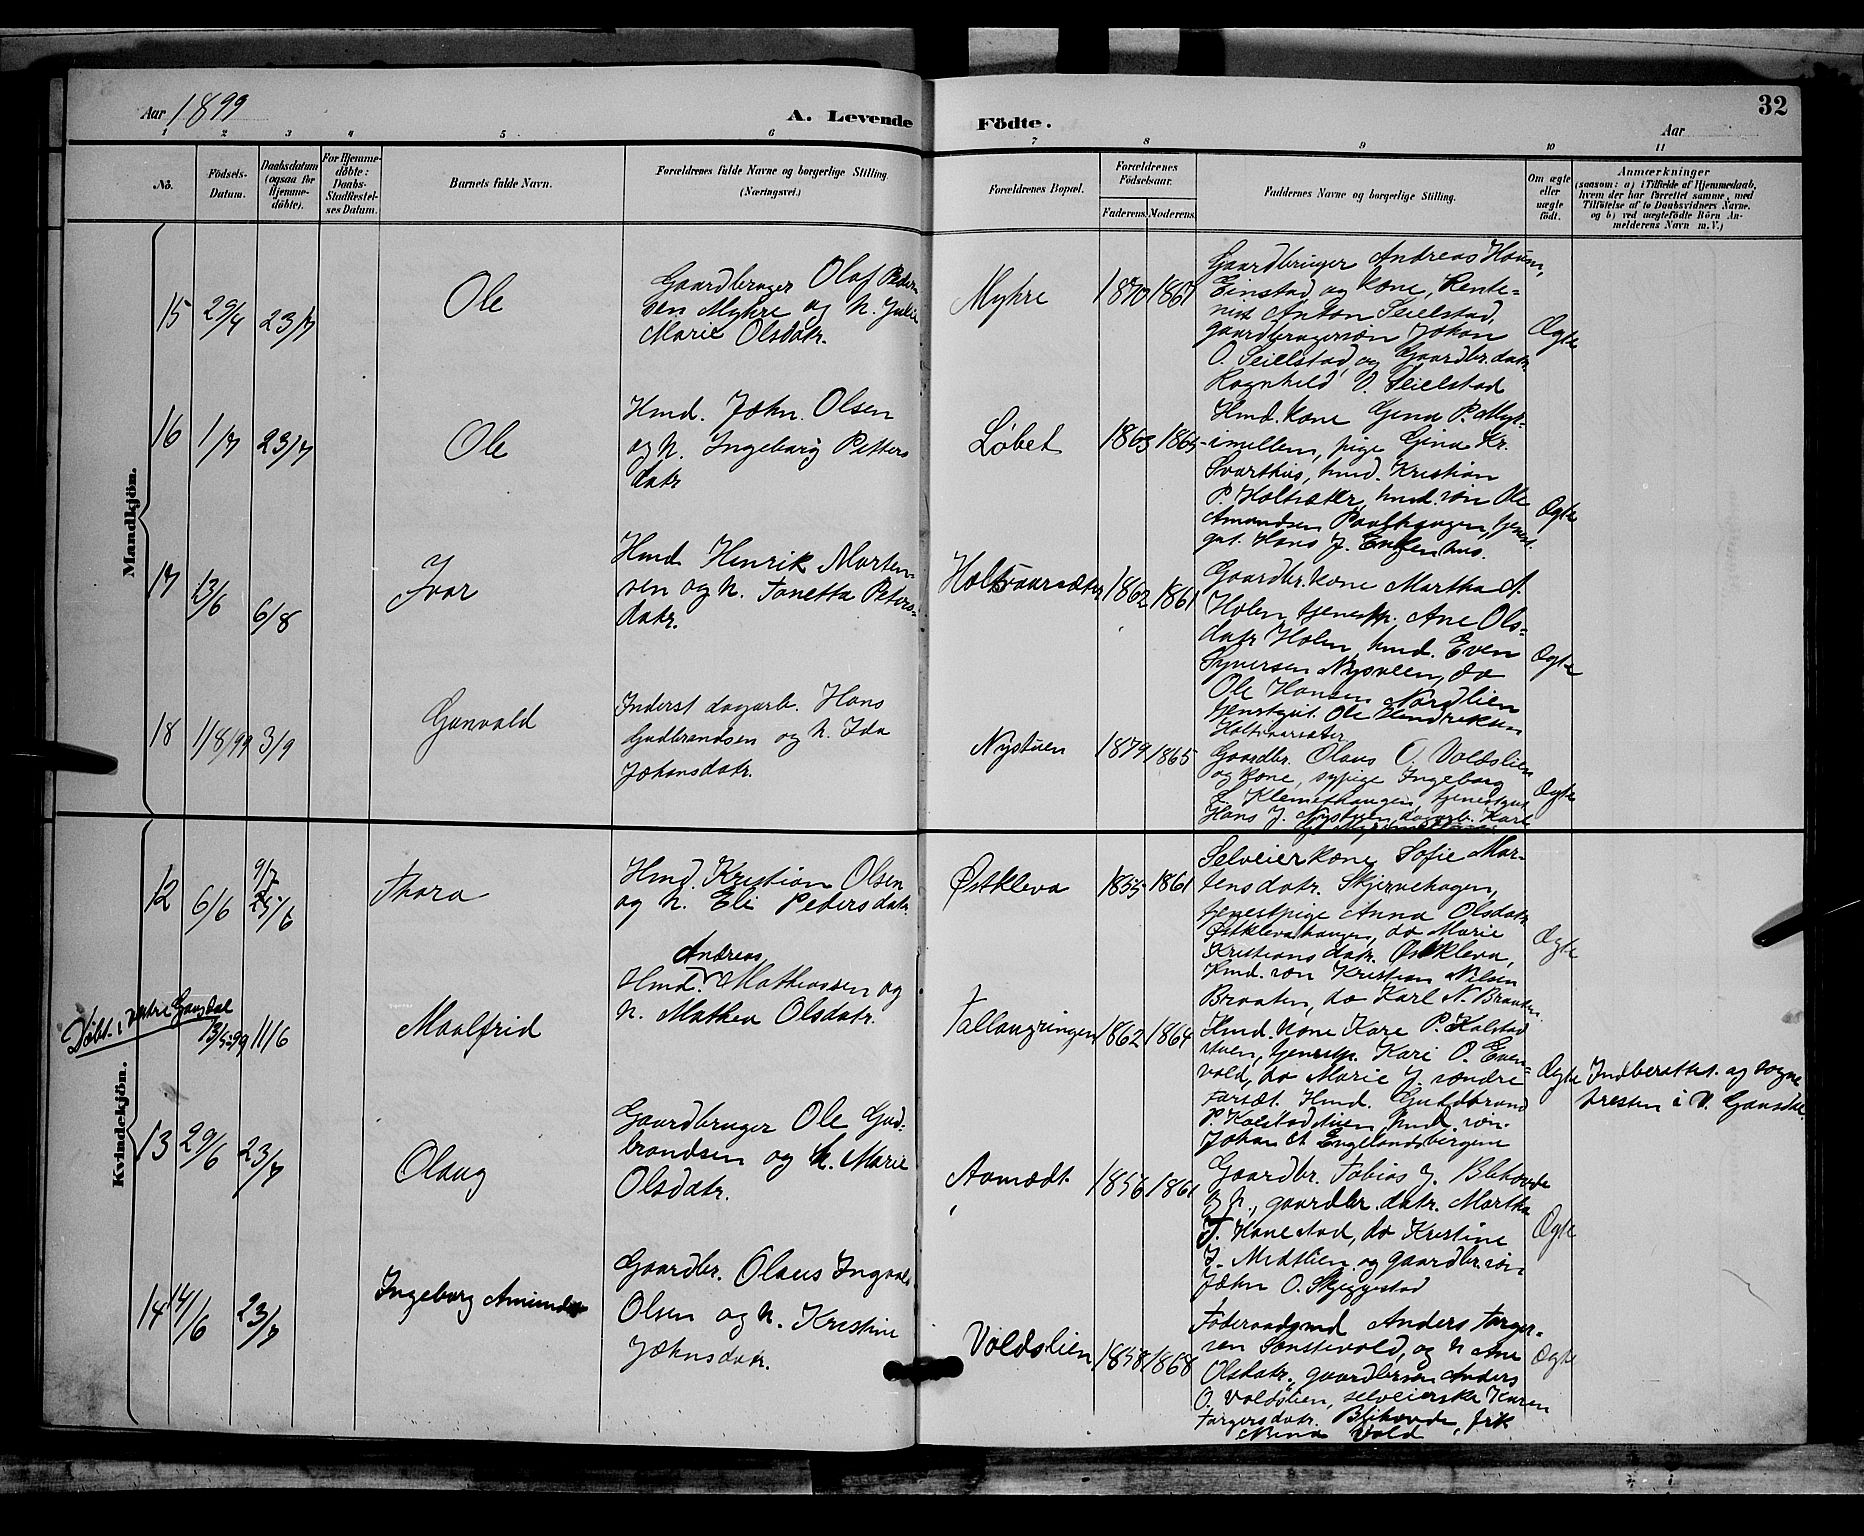 Aar 1899
A. Levende Födte.
32
Aar
1 2 3 4 5 6 7 8 9 10 11
Nô.
Födsels-
Datum.
Daabsdatum
(ogsaa for
Hjemme-
döbte).
For Hjemme-
döbte:
Daabs-
Stadfæstel-
ses Datum.
Barnets fulde Navn.
Forældrenes fulde Navne og borgerlige Stilling
(Næringsvei.)
Forældrenes Bopæl.
Forældrenes
Födselsaar.
Faderens.
Moderens.
Faddernes Navne og borgerlige Stilling.
Om ægte
eller
uægte
födt.
Anmærkninger
(saasom: a) i Tilfælde af Hjemmedaab,
hvem der har forrettet samme, med
Tilföielse af to Daabsvidners Navne.
og b) ved uægtefödte Börn An-
melderens Navn m.V.)
Mandkjön.
15 29/4 23/7
Ole
Gaardbruger Olaf Peder-
sen Myhre og h. Julie
Marie Olsdatr.
Myhre
1870 1867
Gaardbruger Andreas
Einstad og kone, Rente-
nist Anton Seielstad,
gaardbrugersøn Johan
O. Seielstad, og Gaardbr. datr.
Ragnhild O. Seielstad
Ægte
16 1/7 23/7
Ole
Hmd. John Olsen
og h. Ingeborg Petters
datr
Løbet
1863 1865
Hmd. kone Gina P.
imellem, pige Gina Kr.
Svarthus, hmd. Kristian
P. Holtsæter, hmd. søn Ole
Amundsen Paalhaugen, tjenest.
gut. Hans J.
Ægte
17 13/6 6/8
Ivar
Hmd Henrik Morten-
sen og h. Tonetta Peters-
datr.
Holtsvarsæter
1862 1861
Gaardbr. kone Martha A.
Holen, tjenestp. Ane Ols-
datr Holen, hmd. Even
Syversen Nysveen, do
Ole Hansen Nordlien
tjenstgut. Ole Hendriksen
Holtsvarsæter
Ægte
18 1/8 99 3/9
Gunvald
Inderst dagarb. Hans
Gudbrandsen og h. Ida
Johansdatr.
Nystuen
1879 1865
Gaardbr. Olaus O. Voldslien
og kone, sypige Ingeborg
L. Klemethaugen, tjenestgut
Hans J. Nystuen, dagarb. Karl
Ægte
Kvindekjön.
12 6/6 9/7
25/6
Thora
Hmd. Kristian Olsen
og h. Eli Pedersdatr.
Østkleva
1855 1861
Selveierkone Sofie Mor-
tensdatr. Skjervehagen,
tjenestpige Anna Olsdatr
Østklevahaugen, do Marie
Kristiansdatr. Østkleva,
Hmd. søn Kristian Nilsen
Braaten, do Karl N. Braaten.
Ægte
Døbt i vestre Gausdal
13/5 99 11/6
Maalfrid
Andreas
Hmd. Mathiassen og
h. Mathea Olsdatr.
Tallaugringen
1862 1864
Hmd. kone Kare P. Kolstad
stuen, tjenestp. Kari O. Even
vold, do Marie J. søndre
Forsæt. Hmd. Guldbrand
P. Kolstadstuen, hmd. søn.
Johan A. Engelandsbergene
Ægte
Indberettet. af sogne
presten i V. Gausdal
13 29/6 23/7
Olaug
Gaardbruger Ole Gud-
brandsen og h. Marie
Olsdatr.
Aamodt
1856 1861
Gaardbr. Tobias J. Blihovde
og h., gaardbr. datr. Martha
J. Hanestad, do Kristine
J. Midtlien og gaardbr. søn.
John O. Skjeggestad
Ægte
14 14/6 23/7
Ingeborg Amunda
Gaardbr. Olaus Ingvald
Olsen og h. Kristine
Johnsdatr.
Voldslien
1858 1868
Føderaadsmd Anders Torger-
sen Sønstevold, og h Ane
Olsdatr., gaardbrsøn Anders
O. Voldslien, selveierske Karen
Torgersdatr. Blihovde, frk
Nina Vold
Ægte